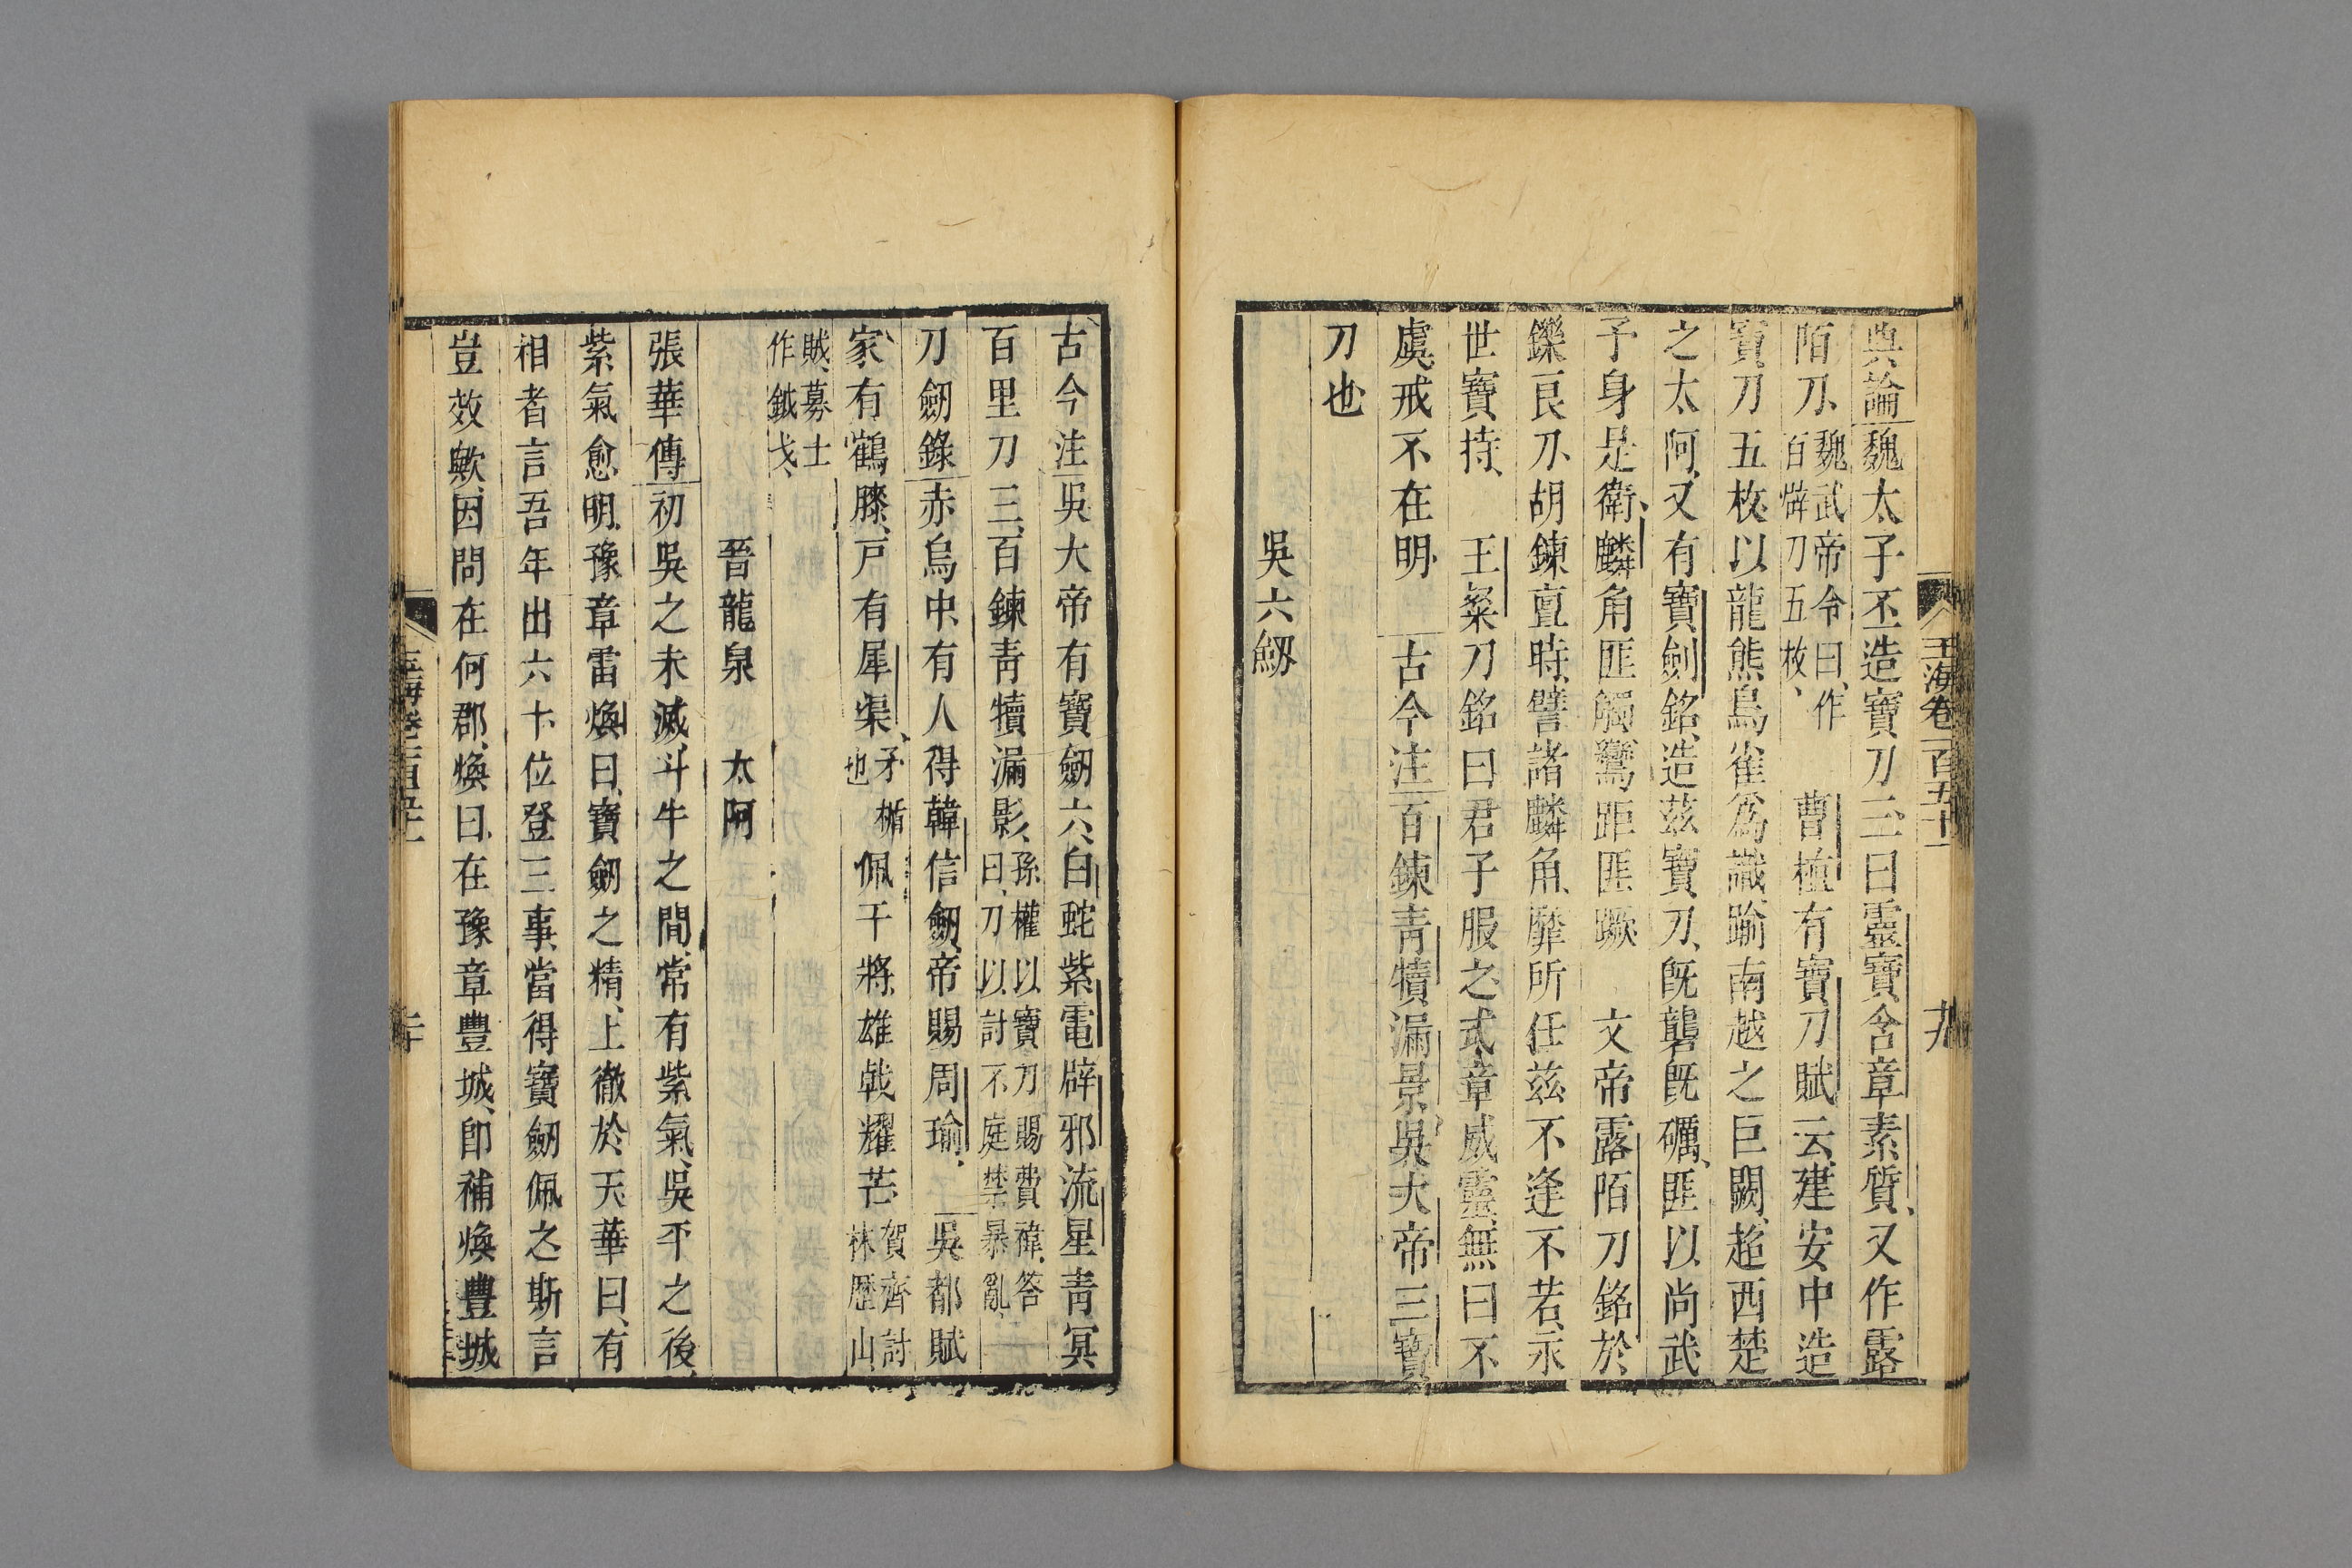 玉海卷一百五十一
十九
典論魏太子丕造寶刀三曰靈寶含章素質又作露
陌刀魏武帝令曰作百辟刀五枚曹植有寶刀賦云建安中造
寶刀五枚以龍熊鳥雀爲識踰南越之巨闕超西楚
之太阿又有寶劍銘造茲寶刀旣礱旣礪匪以尚武
予身是衛麟角匪觸鸞距匪蹶 文帝露陌刀銘於
鑠良刀胡鍊亶時譬諸麟角靡所任茲不逢不若永
世寶持 王粲刀銘曰君子服之式章威靈無曰不
虞戒不在明 古今注百鍊青犢漏景吳大帝三寶
刀也
吳六劒
古今注吳大帝有寶劒六白蛇紫電辟邪流星青冥
百里刀三百鍊青犢漏影孫權以寶刀賜費禕答曰刀以討不庭禁暴亂
刀劒錄赤烏中有人得韓信劒帝賜周瑜 吳都賦
家有鶴膝戶有犀渠矛楯也佩干將雄戟耀芒賀齊討袜歷山
賊募士作鉞戈
晉龍泉 太阿
張華傳初吳之未滅斗牛之間常有紫氣吳平之後
紫氣愈明豫章雷煥曰寶劒之精上徹於天華曰有
相者言吾年出六十位登三事當得寶劒佩之斯言
豈效歟因問在何郡煥曰在豫章豐城卽補煥豐城
二十